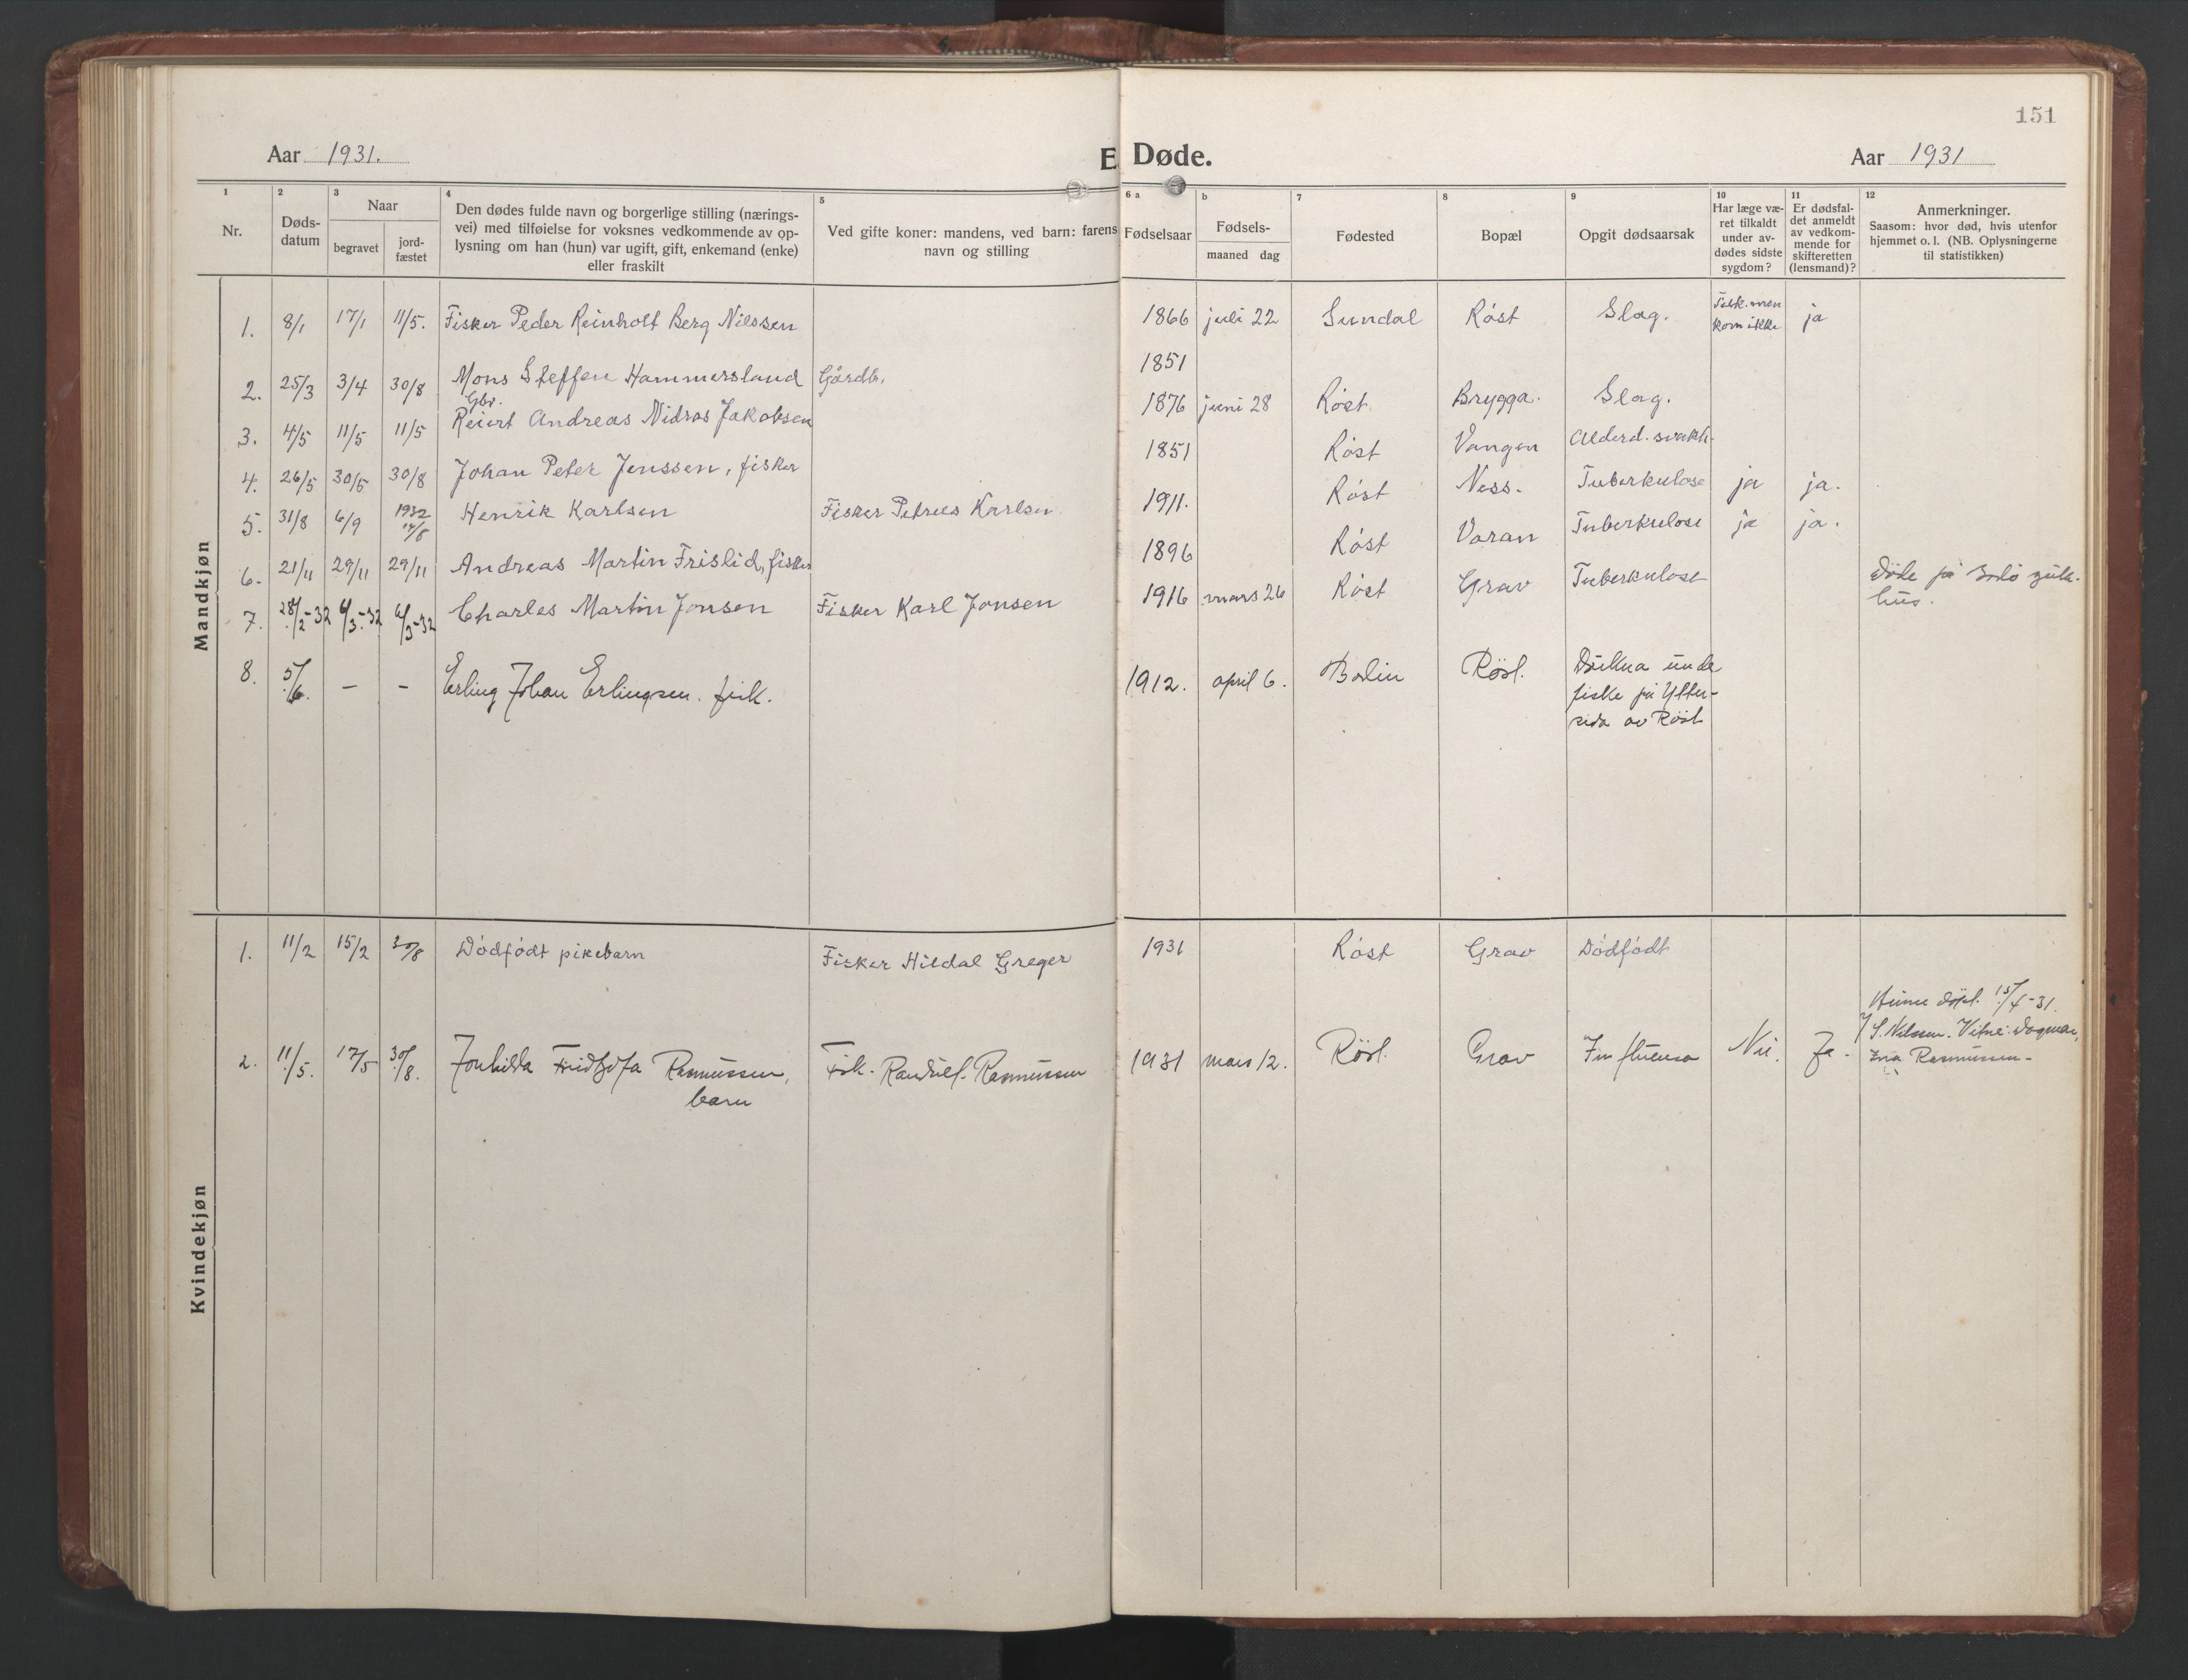 151
Aar 1931.
E Døde.
Aar 1931
1 2 3 4 5 6 a b 7 8 9 10 11 12
Nr.
Døds-
datum
Naar
begravet
jord-
fæstet
Den dødes fulde navn og borgerlige stilling (nærings-
vei) med tilføielse for voksnes vedkommende av op-
lysning om han (hun) var ugift, gift, enkemand (enke)
eller fraskilt
Ved gifte koner: mandens, ved barn: farens
navn og stilling
Fødselsaar
Fødsels-
maaned dag
Fødested
Bopæl
Opgit dødsaarsak
Har læge væ-
ret tilkaldt
under av-
dødes sidste
sygdom?
Er dødsfal-
det anmeldt
av vedkom-
mende for
skifteretten
(lensmand)?
Anmerkninger.
Saasom: hvor død, hvis utenfor
hjemmet o. l. (NB. Oplysningerne
til statistikken)
Mandkjøn
1. 8/1 17/1 11/5. Fisker Peder Reinholt Berg Nilssen 1866 juli 22 Sundal Röst Slag. men kom ikke ja
2. 25/3 3/4 30/8 Mons Steffen Hammersland Gårdb. 1851
Gbr.
3. 4/5 11/5 11/5 Reiert Andreas Nidras Jakobsen 1876 juni 28 Röst Brygga. Slag.
4. 26/5 30/5 30/8 Johan Peter Jenssen, fisker 1851 Röst Vangen Alderd. svakh.
5. 31/8 6/9 1932 14/8 Henrik Karlsen Fisker Petrus Karlsen 1911. Röst Ness. Tuberkulose ja ja.
6. 21/11 29/11 29/11 Andreas Martin Frislid, fisker 1896 Röst Varan Tuberkulose ja ja.
7. 28/2-32 6/3-32 6/3-32 Charles Martin Jonsen Fisker Karl Jonsen 1916 mars 26 Röst Grav Tuberkulose Døde på Bodö sjuk-
hus.
8. 5/6. – – Erling Johan Erlingsen. fisk. 1912. april 6. Bodin Röst. Drukna unde
fiske på Ytter-
sida av Röst
Kvindekjøn
1. 11/2 15/2 30/8 Dödfödt pikebarn Fisker Hildal Greger 1931 Röst Grav Dödfödt
Heime döpt. 15/4-31.
2. 11/5. 17/5 30/8. Jonhilda Fridtjofa Rasmussen, Fisk. Randulf Rasmussen 1931 mars 12. Röst. Grav Influensa Nei. Ja. S. Nilssen. Vitne: Dagmar,
barn
Rasmussen.